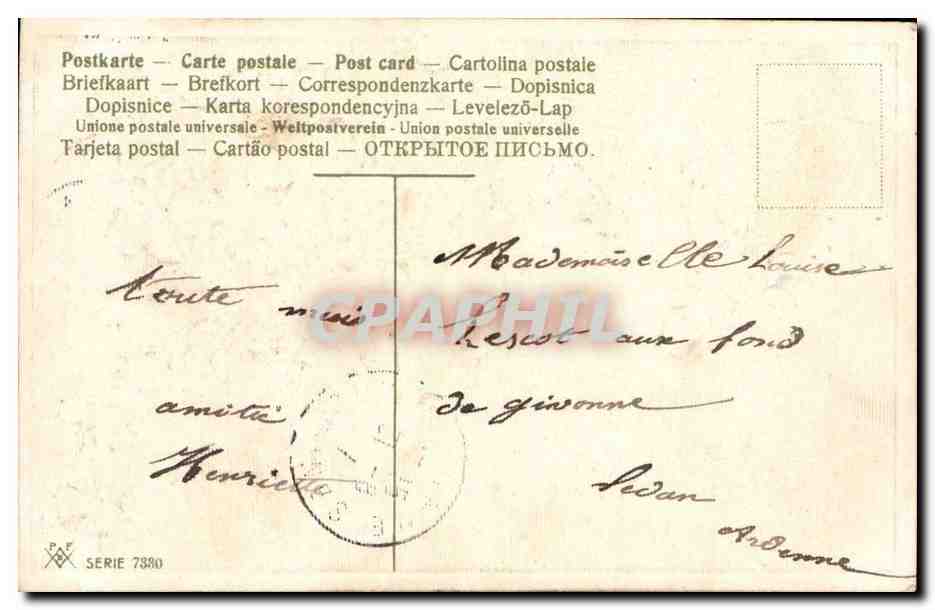 Postkarte — Carte postale — Post card — Cartolina postale
Briefkaart — Brefkort — Correspondenzkarte — Dopisnica
Dopisnice — Karta korespondencyjna — Levelező-Lap
Unione postale universale - Weltpostverein - Union postale universelle
Tarjeta postal — Cartão postal — ОТКРЫТОЕ ПИСЬМО.
Mademoiselle Louise
toute
CPARPHIL
Lescot aux fond
amitié
de givonne
Henriette
Sedan
Ardenne
P F B
SERIE 7330